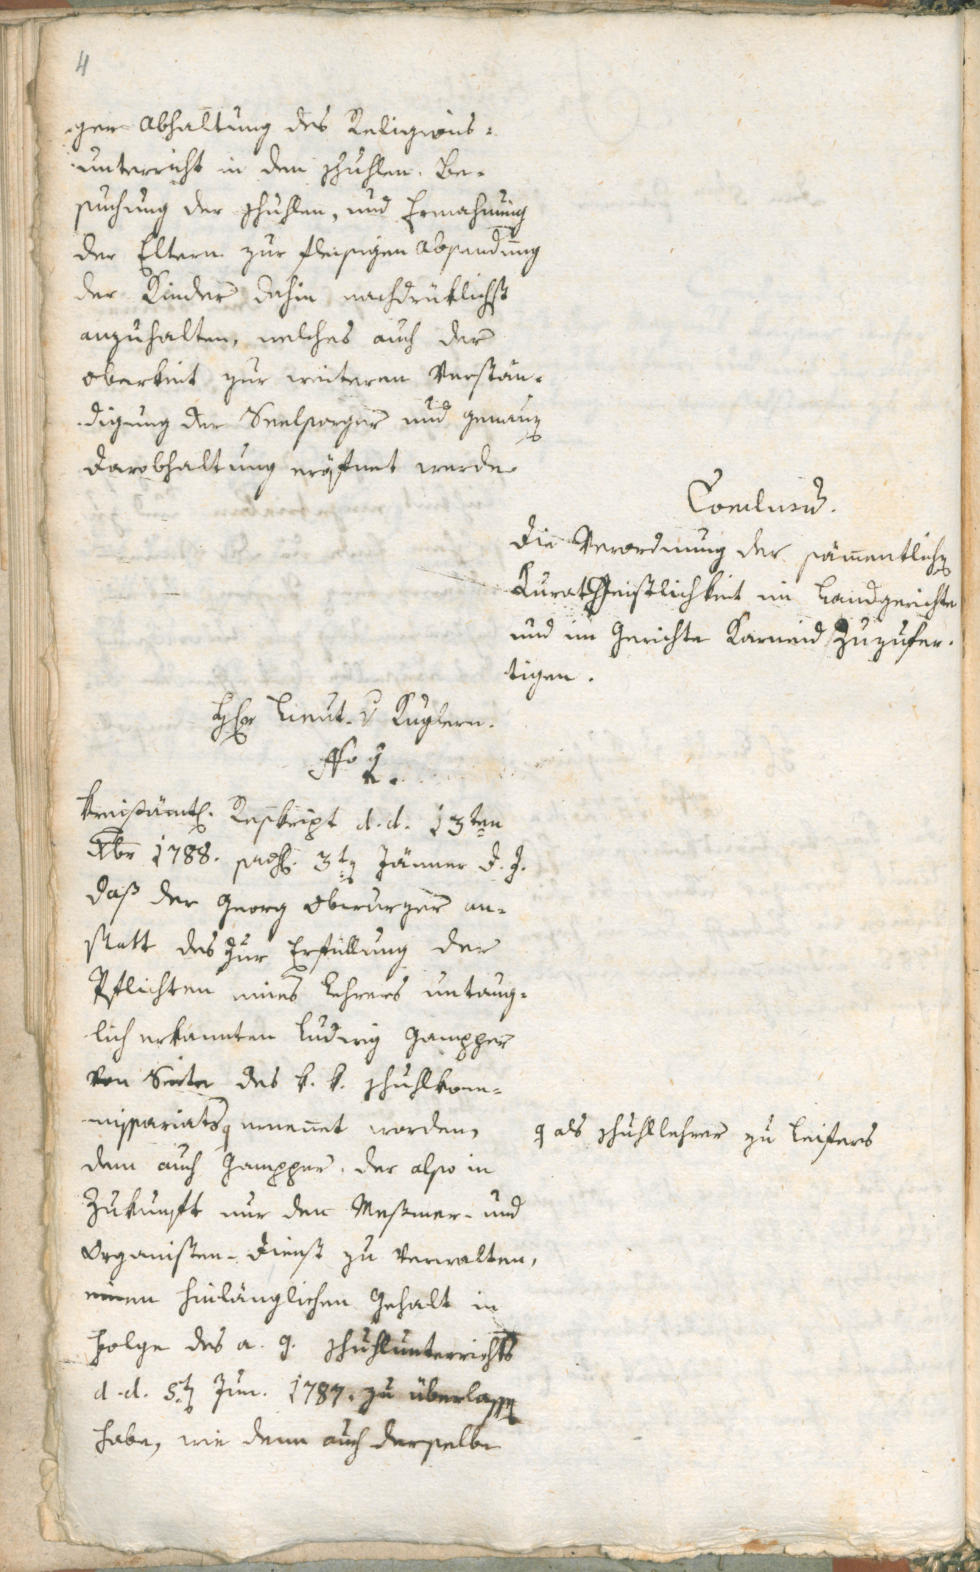 4
ger Abhaltung des Religions-
unterricht in den schuhlen. Be-
suchung der schuhlen, und Ermahnung
der Eltern zur fleisigen Absendung
der Kinder dahin nachdrüklichst
anzuhalten, welches auch der
oberkeit zur weiteren Verstän-
digung der Seelsorger und genauen
darobhaltung eröfnet werde
Conclusum.
die Verordnung der sämentlichen
Kurat Geistlichkeit im Landgerichte
und im Gerichte Karneid Zuzufer-
tigen.
Lieut. v Kuglern.
No 2.
kreisämtl. Reskript d. d. 13ten
Xbr 1788. 3ten Jänner d. J.
daß der Georg oberurzer an-
statt des Zur Erfüllung der
Pflichten eines Lehrers untaug-
lich erkannten Ludwig Gampper
von Seite des k. k. schuhlkom-
missariats ernennet worden,
als schuhllehrer zu Leifers
dem auch Gampper, der also in
Zukunft nur den Meßmer- und
Organisten-dienst zu verwalten,
einen hinlänglichen Gehalt in
folge des a. g. schuhlunterrichts
d. d. 5ten Jun. 1787. zu überlassen
habe, wie denn auch derselbe